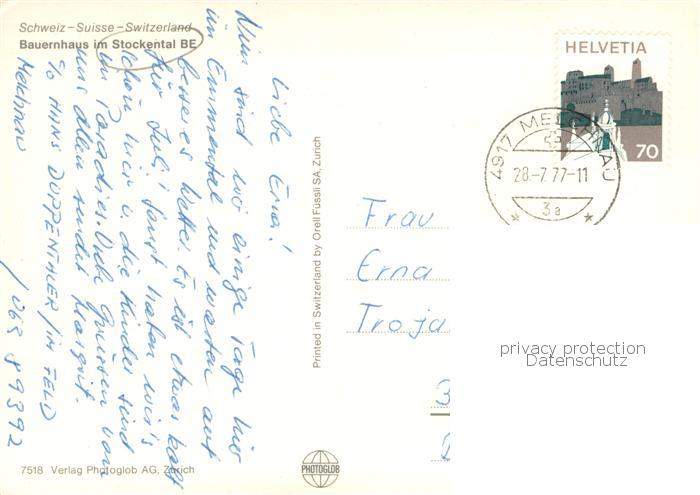 Schweiz–Suisse–Switzerland
Bauernhaus im Stockental BE
Liebe Erna!
Nun sind wir einige Tage hier
im Emmental und warten auf
besseres Wetter. Es ist etwas kalt
für Juli, sonst haben wir's
schön wir u. die Kinder sind
im Paradies. Liebe Grüsse von
uns allen sendet Margrit.
c/o HANS DUPPENTHLER / IM FELD
Melchnau
/ 063 89392
7518 Verlag Photoglob AG, Zürich
Printed in Switzerland by Orell Füssli SA, Zurich
PHOTOGLOB
HELVETIA
70
4917 MELCHNAU
28.-7.77-11
3a
Frau
Erna
Troja
3
privacy protection
Datenschutz